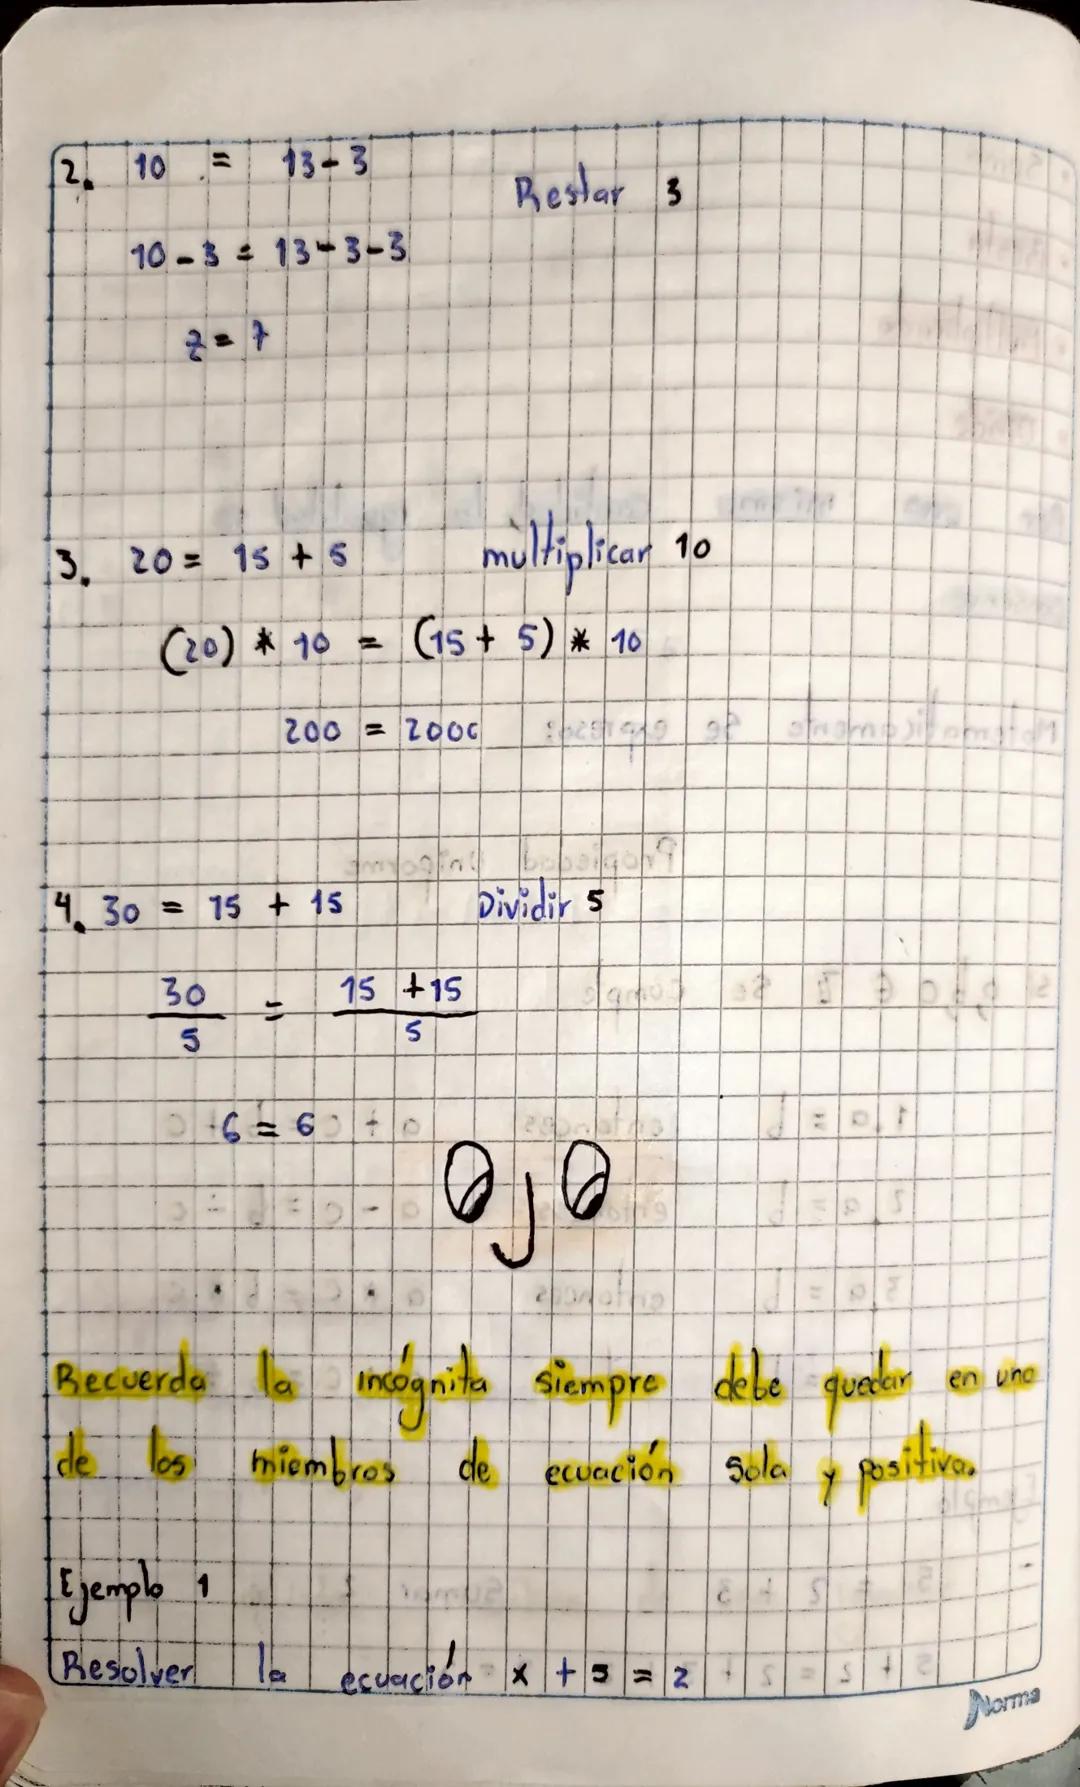 2. 10 = 13-3 Restar 3
10-3 = 13-3-3
7=7
3. 20 = 15 + 5 múltiplicar 10
(20) * 10 = (15 + 5) * 10
200 = 200
4. 30 = 15 + 15 Dividir 5
30/5 = 15 +15/5
6 = 6
Ojo
Recuerda la incógnita siempre debe quedar en uno
de los miembros de ecuación sola y positiva.
Ejemplo 1
Resolver la ecuación x + 5 = 2
Norma